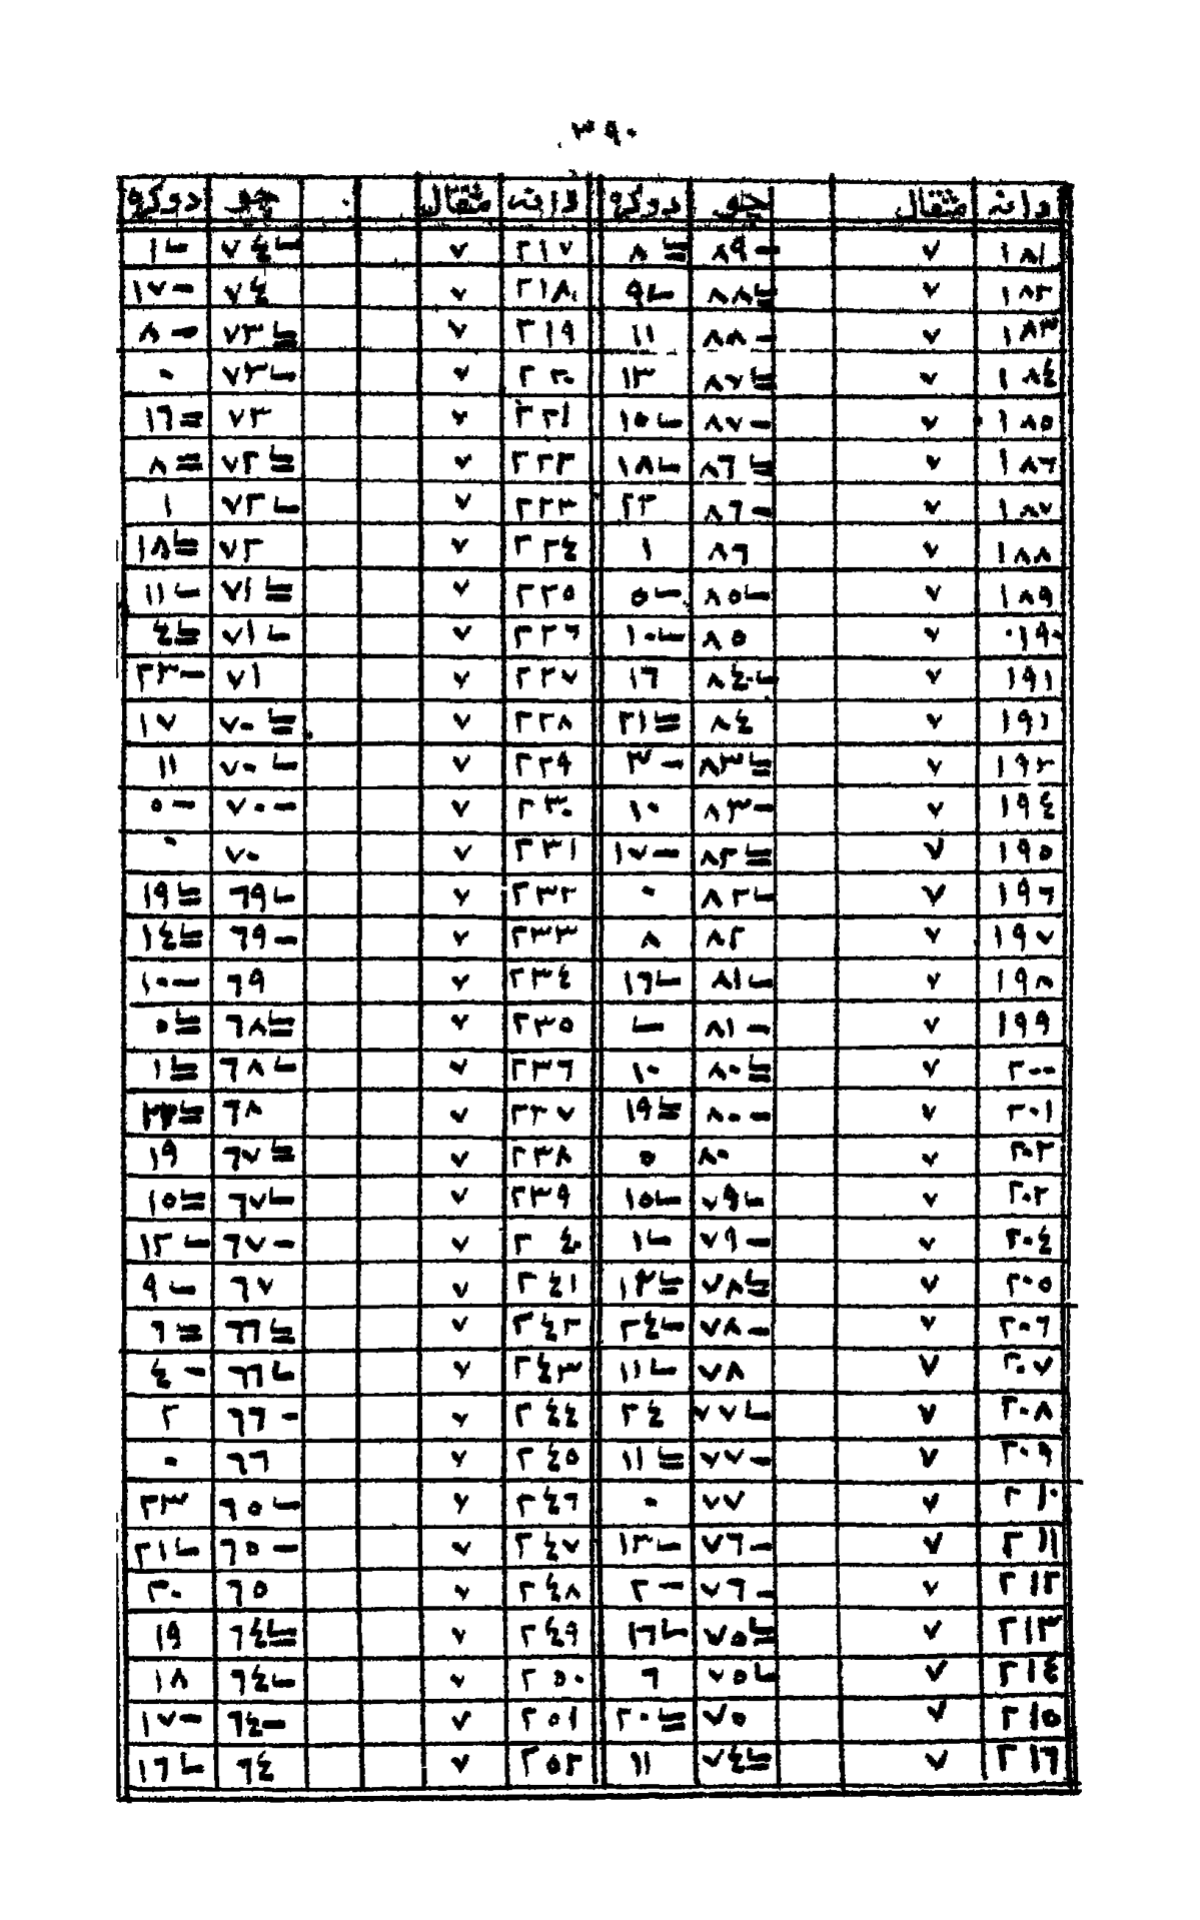 ٣٩٠
دانه مثقال چو دوكره دانه مثقال چو دوكره
١٨١ ٧ ٨٩- ٨ ٢١٧ ٧ ٧٤ ١
١٨٢ ٧ ٨٨ ٩ ٢١٨ ٧ ٧٤ ١٧-
١٨٣ ٧ ٨٨- ١١ ٢١٩ ٧ ٧٣ ٨-
١٨٤ ٧ ٨٧ ١٣ ٢٢٠ ٧ ٧٣ ٠
١٨٥ ٧ ٨٧- ١٥ ٢٢١ ٧ ٧٣ ١٦
١٨٦ ٧ ٨٦ ١٨ ٢٢٢ ٧ ٧٢ ٨
١٨٧ ٧ ٨٦- ٢٢ ٢٢٣ ٧ ٧٢ ١
١٨٨ ٧ ٨٦ ١ ٢٢٤ ٧ ٧٢ ١٨
١٨٩ ٧ ٨٥ ٥ ٢٢٥ ٧ ٧١ ١١
١٩٠ ٧ ٨٥ ١٠ ٢٢٦ ٧ ٧١ ٤
١٩١ ٧ ٨٤ ١٦ ٢٢٧ ٧ ٧١ ٢٣-
١٩٢ ٧ ٨٤ ٢١ ٢٢٨ ٧ ٧٠ ١٧
١٩٣ ٧ ٨٣ ٣- ٢٢٩ ٧ ٧٠ ١١
١٩٤ ٧ ٨٣- ١٠ ٢٣٠ ٧ ٧٠- ٥-
١٩٥ ٧ ٨٢ ١٧- ٢٣١ ٧ ٧٠ ٠
١٩٦ ٧ ٨٢ ٠ ٢٣٢ ٧ ٦٩ ١٩
١٩٧ ٧ ٨٢ ٨ ٢٣٣ ٧ ٦٩- ١٤
١٩٨ ٧ ٨١ ١٦ ٢٣٤ ٧ ٦٩ ١٠-
١٩٩ ٧ ٨١- ٢٣٥ ٧ ٦٨ ٥
٢٠٠ ٧ ٨٠ ١٠ ٢٣٦ ٧ ٦٨ ١
٢٠١ ٧ ٨٠- ١٩ ٢٣٧ ٧ ٦٨
٢٠٢ ٧ ٨٠ ٥ ٢٣٨ ٧ ٦٧ ١٩
٢٠٣ ٧ ٧٩ ١٥ ٢٣٩ ٧ ٦٧ ١٥
٢٠٤ ٧ ٧٩- ١ ٢٤٠ ٧ ٦٧- ١٢
٢٠٥ ٧ ٧٨ ١٢ ٢٤١ ٧ ٦٧ ٩
٢٠٦ ٧ ٧٨- ٢٤ ٢٤٢ ٧ ٦٦ ٦
٢٠٧ ٧ ٧٨ ١١ ٢٤٣ ٧ ٦٦ ٤-
٢٠٨ ٧ ٧٧ ٢٤ ٢٤٤ ٧ ٦٦- ٢
٢٠٩ ٧ ٧٧- ١١ ٢٤٥ ٧ ٦٦ ٠
٢١٠ ٧ ٧٧ ٠ ٢٤٦ ٧ ٦٥ ٢٣
٢١١ ٧ ٧٦- ١٣ ٢٤٧ ٧ ٦٥- ٢١
٢١٢ ٧ ٧٦- ٢- ٢٤٨ ٧ ٦٥ ٢٠
٢١٣ ٧ ٧٥ ١٦ ٢٤٩ ٧ ٦٤ ١٩
٢١٤ ٧ ٧٥ ٦ ٢٥٠ ٧ ٦٤ ١٨
٢١٥ ٧ ٧٥ ٢٠ ٢٥١ ٧ ٦٤- ١٧-
٢١٦ ٧ ٧٤ ١١ ٢٥٢ ٧ ٦٤ ١٦